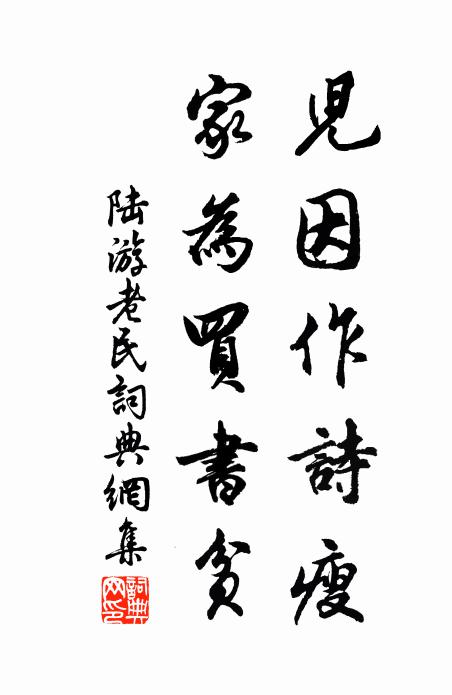 兒因作詩瘦
家為買書貧
陸游老民詞典網集
詞典网印